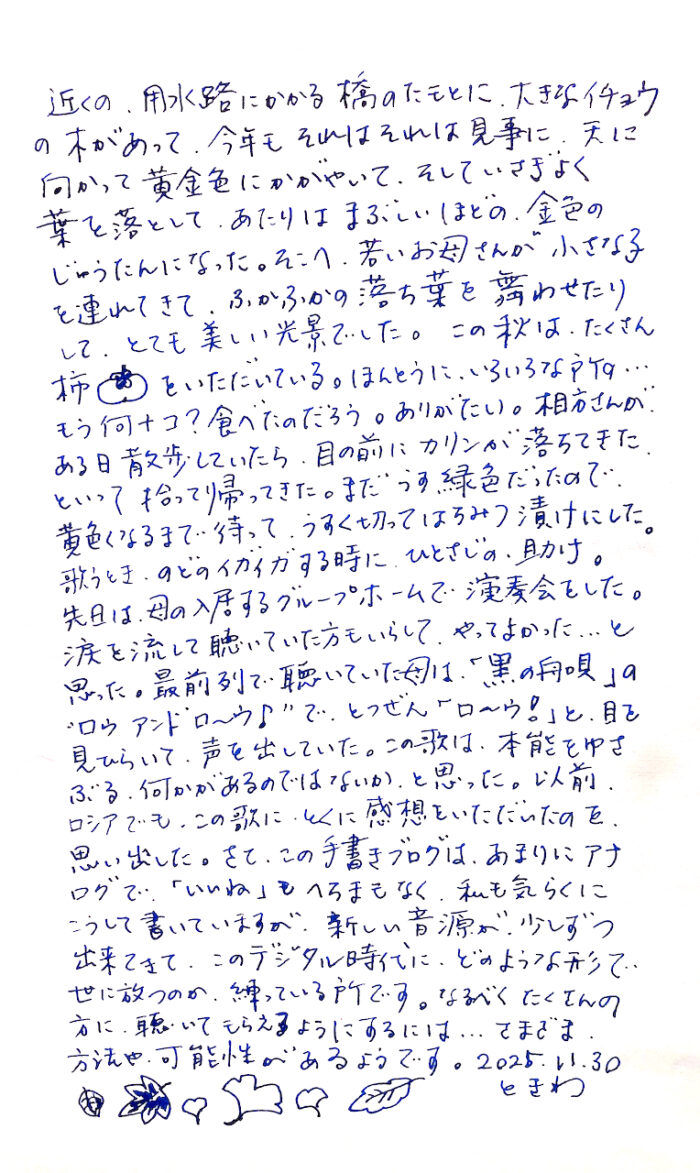 近くの、用水路にかかる橋のたもとに、大きなイチョウ
の木があって、今年も それはそれは見事に、天に
向かって黄金色にかがやいて、そしていさぎよく
葉を落として、あたりは まぶしいほどの、金色の
じゅうたんになった。そこへ、若いお母さんが 小さな子
を連れてきて、ふかふかの落ち葉を 舞わせたり
して、とても美しい光景でした。この秋は、たくさん
柿 をいただいている。ほんとうに、いろいろな所の…
もう何十コ?食べたのだろう。ありがたい。相方さんが、
ある日散歩していたら、目の前にカリンが落ちてきた、
といって拾って帰ってきた。まだうす緑色だったので、
黄色くなるまで待って、うすく切ってはちみつ漬けにした。
歌うとき、のどのイガイガする時に、ひとさじの、助け。
先日は、母の入居するグループホームで、演奏会をした。
涙を流して聴いていた方もいらして、やってよかった…と
思った。最前列で聴いていた母は、「黒の舟唄」の
"ロウ アンド ロ〜ウ♪"で、とつぜん「ロ〜ウ!」と、目を
見ひらいて、声を出していた。この歌は、本能をゆさ
ぶる、何かがあるのではないか、と思った。以前、
ロシアでも、この歌に、とくに感想をいただいたのを、
思い出した。さて、この手書きブログは、あまりにアナ
ログで、「いいね」もへちまもなく、私も気らくに
こうして書いていますが、新しい音源が、少しずつ
出来てきて、このデジタル時代に、どのような形で、
世に放つのか、練っている所です。なるべくたくさんの
方に、聴いてもらえるようにするには… さまざま、
方法や、可能性があるようです。2025.11.30
ときわ